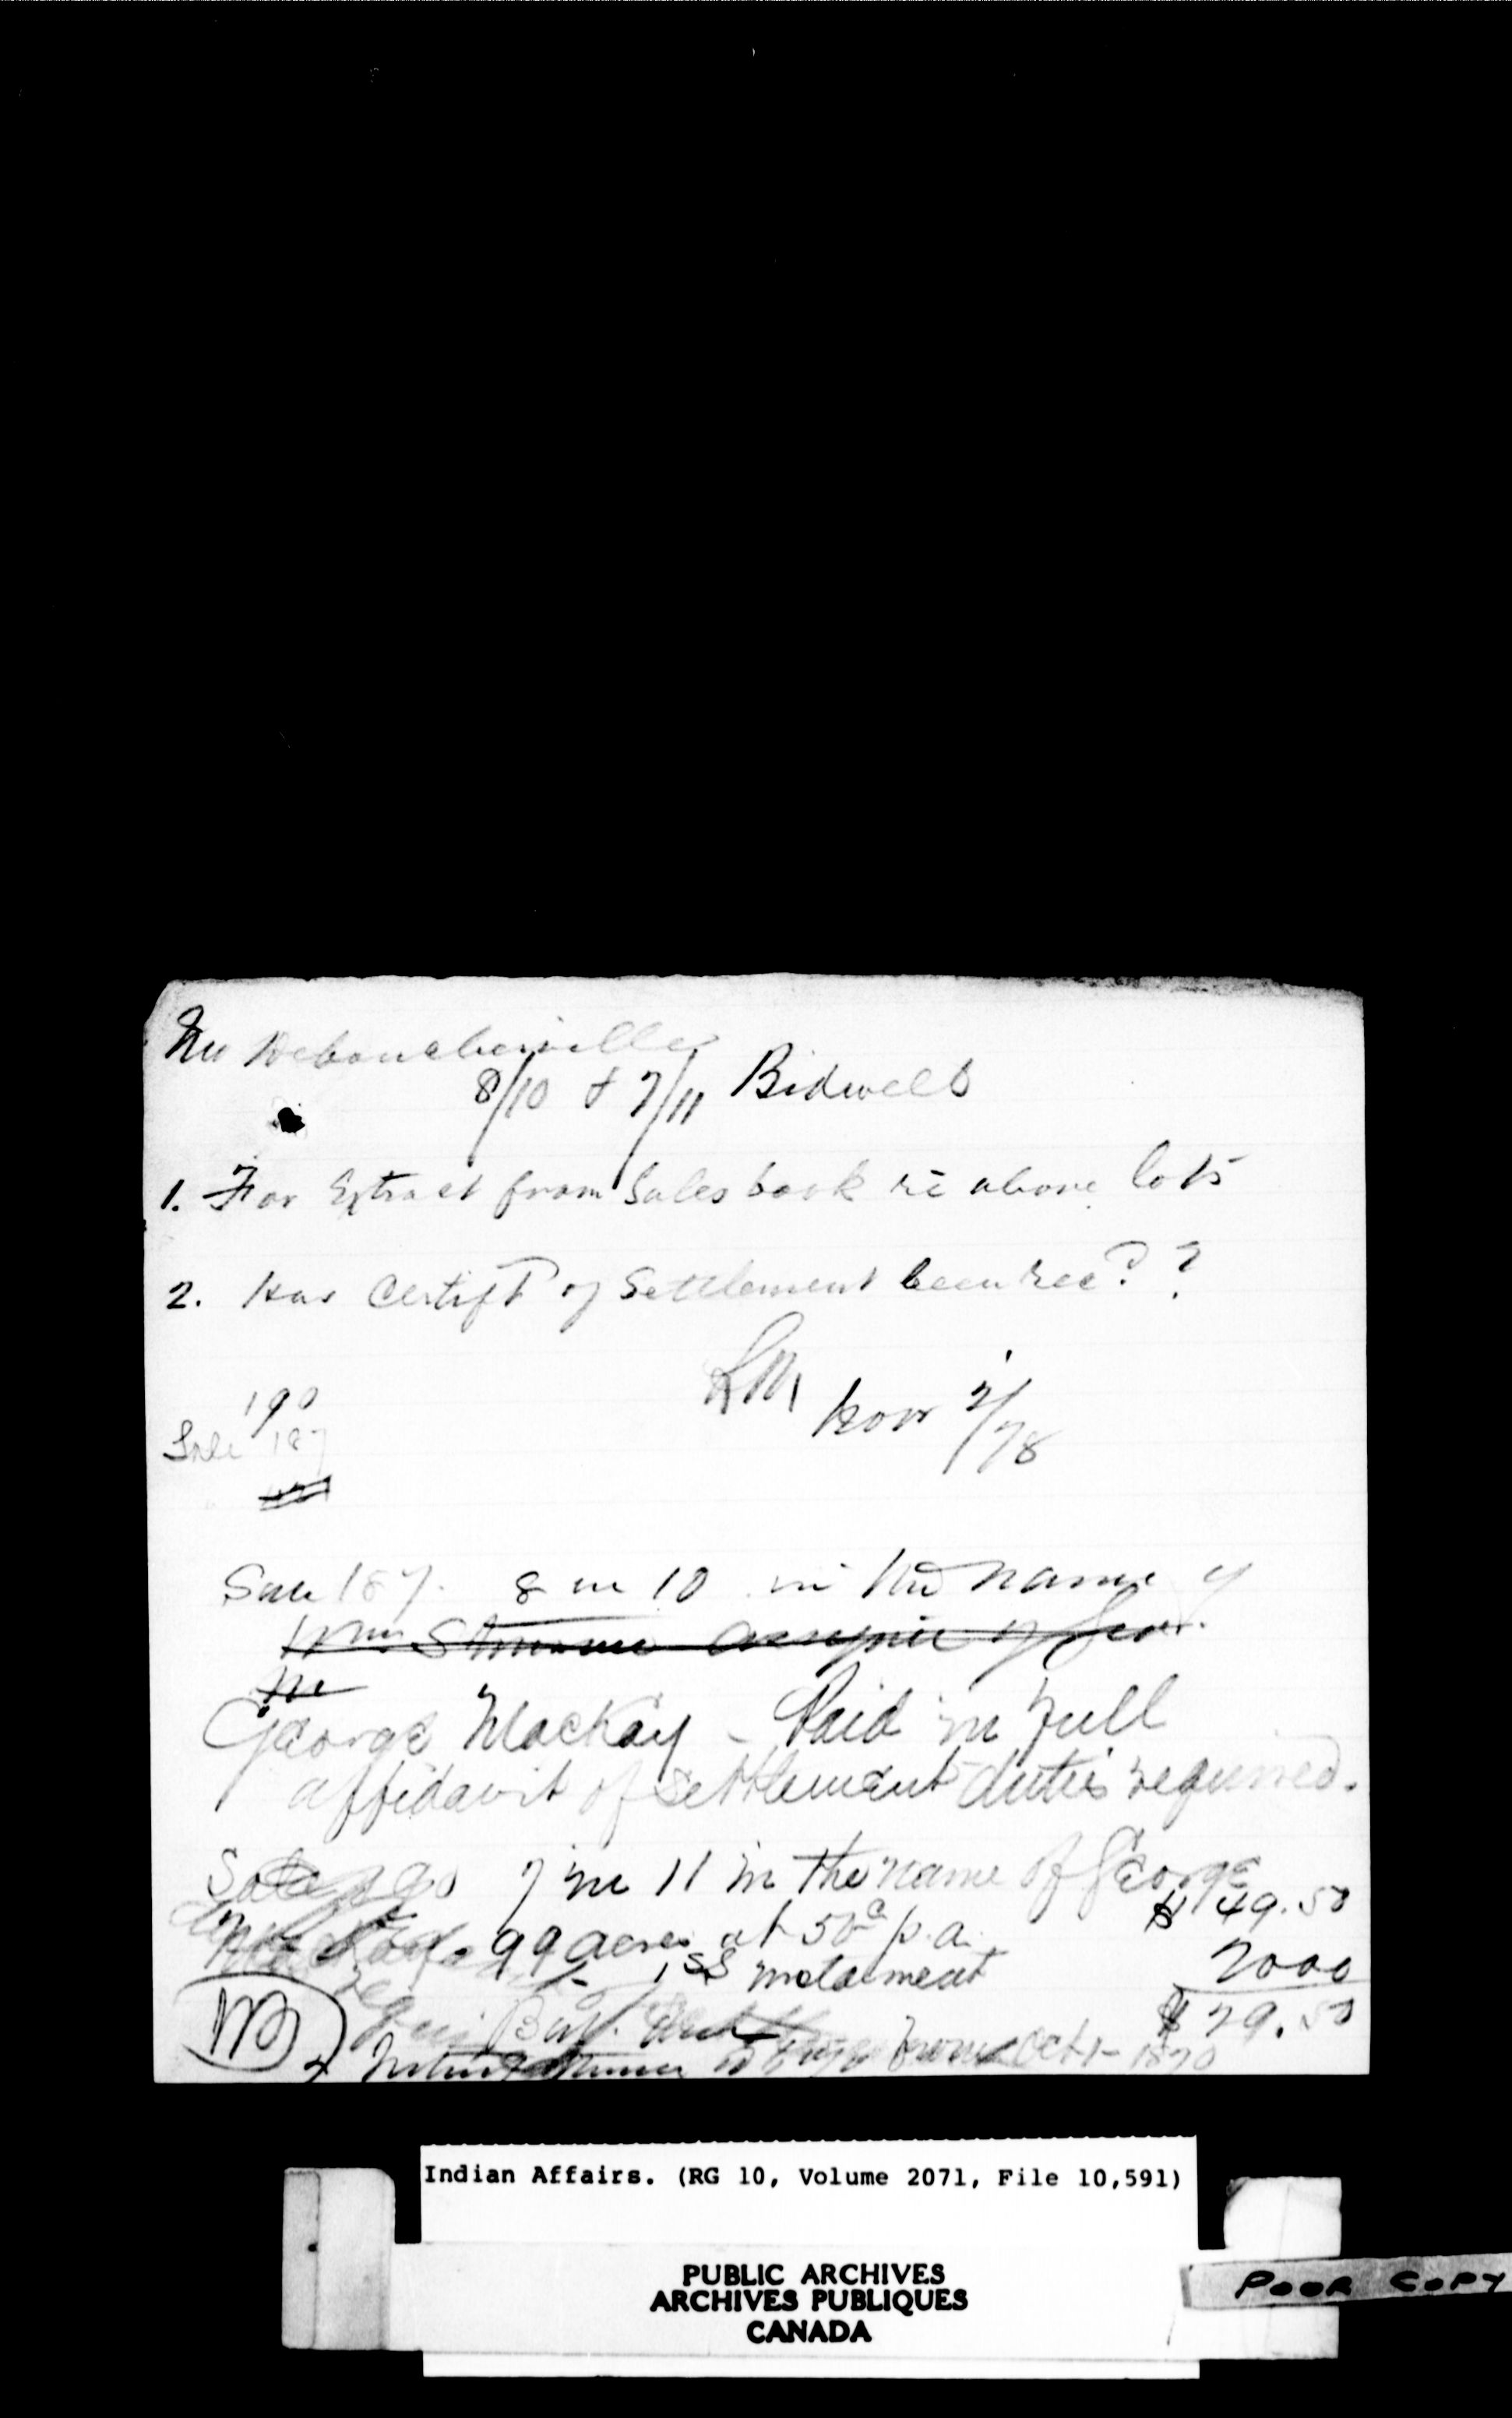 Mr Deboucherville
8/10 & 7/11 Bidwell
1. For Extract from Sales book re above lots
2. Has Certift of Settlement been rec? ?
LM Nov 2/78
190
Sale 187
Sale 187. 8 in 10 in the name of
Wm assignee of
Mc
George MacKay - Paid in full
affidavit of settlement duties required.
Sale 190 7 in 11 in the name of George
$ 49.50
99 acres at 50c p.a.
1st instalment 2000
$ 29.50
Bal.
from Oct 1 - 1870
Indian Affairs. (RG 10, Volume 2071, File 10,591)
PUBLIC ARCHIVES
ARCHIVES PUBLIQUES
CANADA
POOR COPY